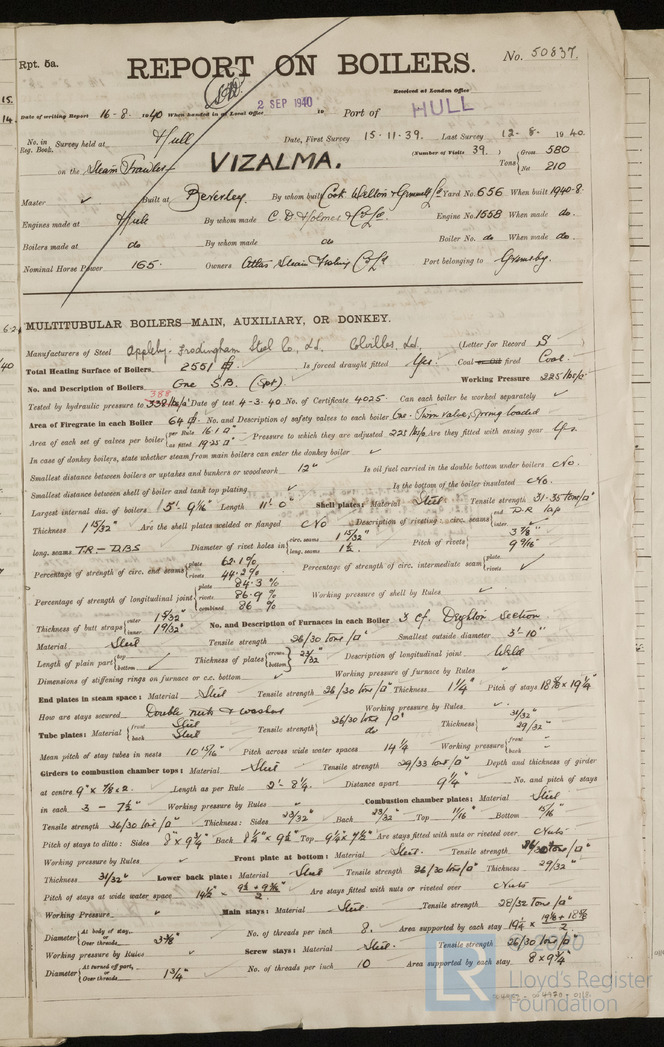 Rpt. 5a.
REPORT ON BOILERS.
No. 50837.
Received at London Office
2 SEP 1940
Date of writing Report 16-8-1940 When handed in at Local Office 19 Port of HULL
No. in Reg. Book. Survey held at Hull Date, First Survey 15.11.39. Last Survey 12-8-1940.
(Number of Visits 39.)
on the Steam Trawler VIZALMA. Tons { Gross 580 Net 210
Master ✓ Built at Beverley. By whom built Cook Welton & Gemmell Ld Yard No. 656 When built 1940-8
Engines made at Hull By whom made C. D. Holmes & Co Ld. Engine No. 1558 When made do.
Boilers made at do By whom made do Boiler No. do When made do.
Nominal Horse Power 165. Owners Atlas Steam Fishing Co Ld Port belonging to Grimsby.
MULTITUBULAR BOILERS—MAIN, AUXILIARY, OR DONKEY.
Manufacturers of Steel Appleby-Frodingham Steel Co., Ld. Colvilles, Ld. (Letter for Record S )
Total Heating Surface of Boilers 2551 Is forced draught fitted Yes. Coal or Oil fired Coal.
No. and Description of Boilers One S.B. (Spt) Working Pressure 225 lbs/□"
388
Tested by hydraulic pressure to 338 lbs/□" Date of test 4-3-40 No. of Certificate 4025 Can each boiler be worked separately ✓
Area of Firegrate in each Boiler 64 No. and Description of safety valves to each boiler One. Twin valve, Spring loaded
Area of each set of valves per boiler { per Rule 16.1 □" as fitted 19.25 □" Pressure to which they are adjusted 225 lbs/□ Are they fitted with easing gear Yes.
In case of donkey boilers, state whether steam from main boilers can enter the donkey boiler ✓
Smallest distance between boilers or uptakes and bunkers or woodwork 12" Is oil fuel carried in the double bottom under boilers No.
Smallest distance between shell of boiler and tank top plating ✓ Is the bottom of the boiler insulated No.
Largest internal dia. of boilers 15'-9 1/16" Length 11'-0" Shell plates: Material Steel Tensile strength 31.35 tons/□"
Thickness 1 15/32" Are the shell plates welded or flanged No Description of riveting: circ. seams { end D.R. lap inter ✓
long. seams T.R. - D.B.S Diameter of rivet holes in { circ. seams 1 15/32" long. seams 1 1/2" Pitch of rivets { 3 7/8" 9 9/16"
Percentage of strength of circ. end seams { plate 62.1% rivets 44.2% Percentage of strength of circ. intermediate seam { plate rivets ✓
Percentage of strength of longitudinal joint { plate 84.3% rivets 86.9% combined 86% Working pressure of shell by Rules ✓
Thickness of butt straps { outer 1 5/32" inner 1 9/32" No. and Description of Furnaces in each Boiler 3 cf. Deighton Section
Material Steel Tensile strength 26/30 tons/□" Smallest outside diameter 3'-10"
Length of plain part { top bottom ✓ Thickness of plates { crown bottom } 23/32" Description of longitudinal joint Weld
Dimensions of stiffening rings on furnace or c.c. bottom ✓ Working pressure of furnace by Rules ✓
End plates in steam space: Material Steel Tensile strength 26/30 tons/□" Thickness 1 1/4" Pitch of stays 18 5/8" x 19 1/4"
How are stays secured Double nuts & washer Working pressure by Rules ✓
Tube plates: Material { front Steel back Steel Tensile strength { 26/30 tons/□" do Thickness { 31/32" 29/32"
Mean pitch of stay tubes in nests 10 15/16" Pitch across wide water spaces 14 1/4 Working pressure { front back ✓
Girders to combustion chamber tops: Material Steel Tensile strength 29/33 tons/□" Depth and thickness of girder
at centre 9" x 7/8 x 2. Length as per Rule 2'-8 1/4. Distance apart 9 1/4" No. and pitch of stays
in each 3 - 7 1/2" Working pressure by Rules ✓ Combustion chamber plates: Material Steel
Tensile strength 26/30 tons/□" Thickness: Sides 23/32" Back 23/32" Top 11/16" Bottom 15/16"
Pitch of stays to ditto: Sides 8" x 9 3/4" Back 8 1/4" x 9 1/2" Top 9 1/4" x 7 1/2" Are stays fitted with nuts or riveted over Nuts
Working pressure by Rules ✓ Front plate at bottom: Material Steel. Tensile strength 26/30 tons/□"
Thickness 31/32" Lower back plate: Material Steel Tensile strength 26/30 tons/□" Thickness 29/32"
Pitch of stays at wide water space Are stays fitted with nuts or riveted over Nuts
Working Pressure ✓ Main stays: Material Steel. Tensile strength 28/32 tons/□"
Diameter { At body of stay, or Over threads 3 3/8" No. of threads per inch 8. Area supported by each stay
Working pressure by Rules ✓ Screw stays: Material Steel. Tensile strength 26/30 tons/□"
Diameter { At turned off part, or Over threads 1 3/4" No. of threads per inch 10 Area supported by each stay 8 x 9 3/4"
LR
Lloyd's Register
Foundation